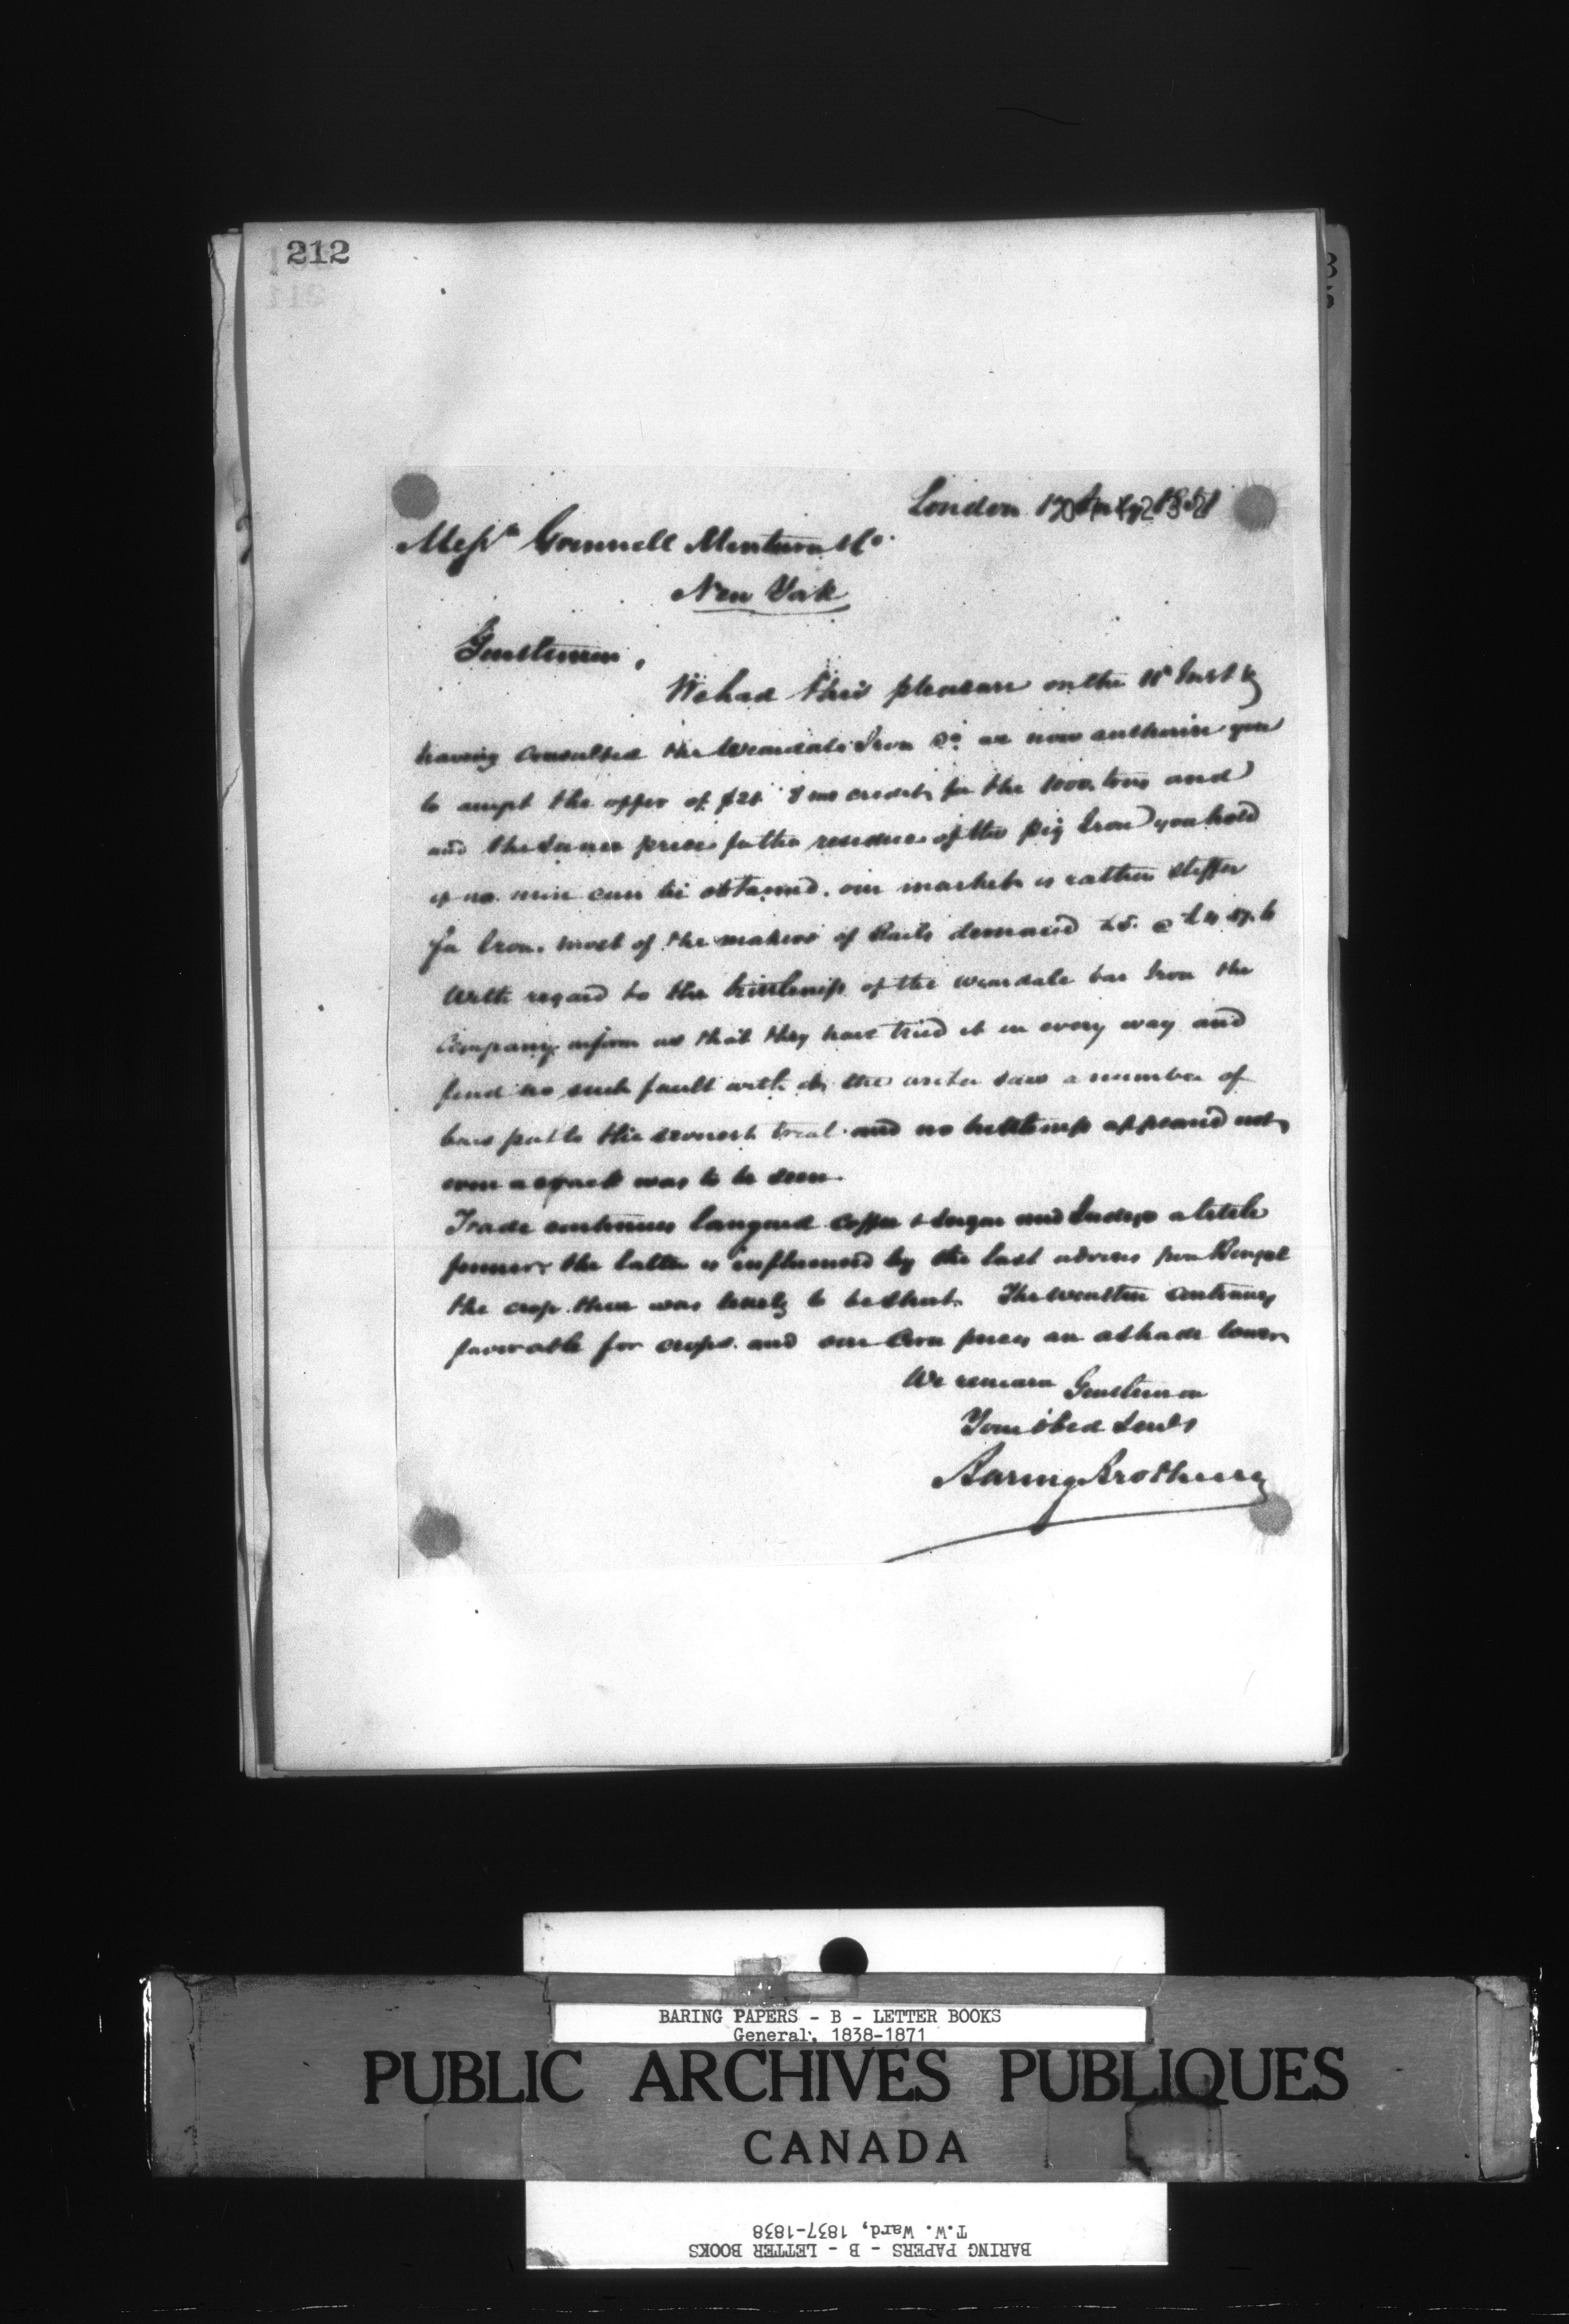 212
211
London 17 July 1851
Mess.rs Grinnell Minturn & Co.
New York
Gentlemen,
We had this pleasure on the 11th Inst &
having consulted the Weardale Iron Co. we now authorise you
to accept the offer of $21 8 mo credit for the 1000 tons and
and the same price for the residue of the pig Iron you hold
if no more can be obtained. our market is rather stiffer
for Iron. most of the makers of Rails demand £5. @
With regard to the brittleness of the Weardale bar Iron the
Company inform us that they have tried it in every way and
find no such fault with it, the writer saw a number of
bars put to the severest trial and no brittleness appeared not
even a crack was to be seen.
Trade continues languid coffee & sugar and Indigo a little
firmer. the latter is influenced by the last advices from Bengal
the crop there was likely to be short. The weather continues
favorable for crops. and our Corn prices are a shade lower
We remain Gentlemen
Your obed Servts
Baring Brothers
BARING PAPERS - B - LETTER BOOKS
General, 1838-1871
PUBLIC ARCHIVES PUBLIQUES
CANADA
T.W. Ward, 1837-1838
BARING PAPERS - B - LETTER BOOKS